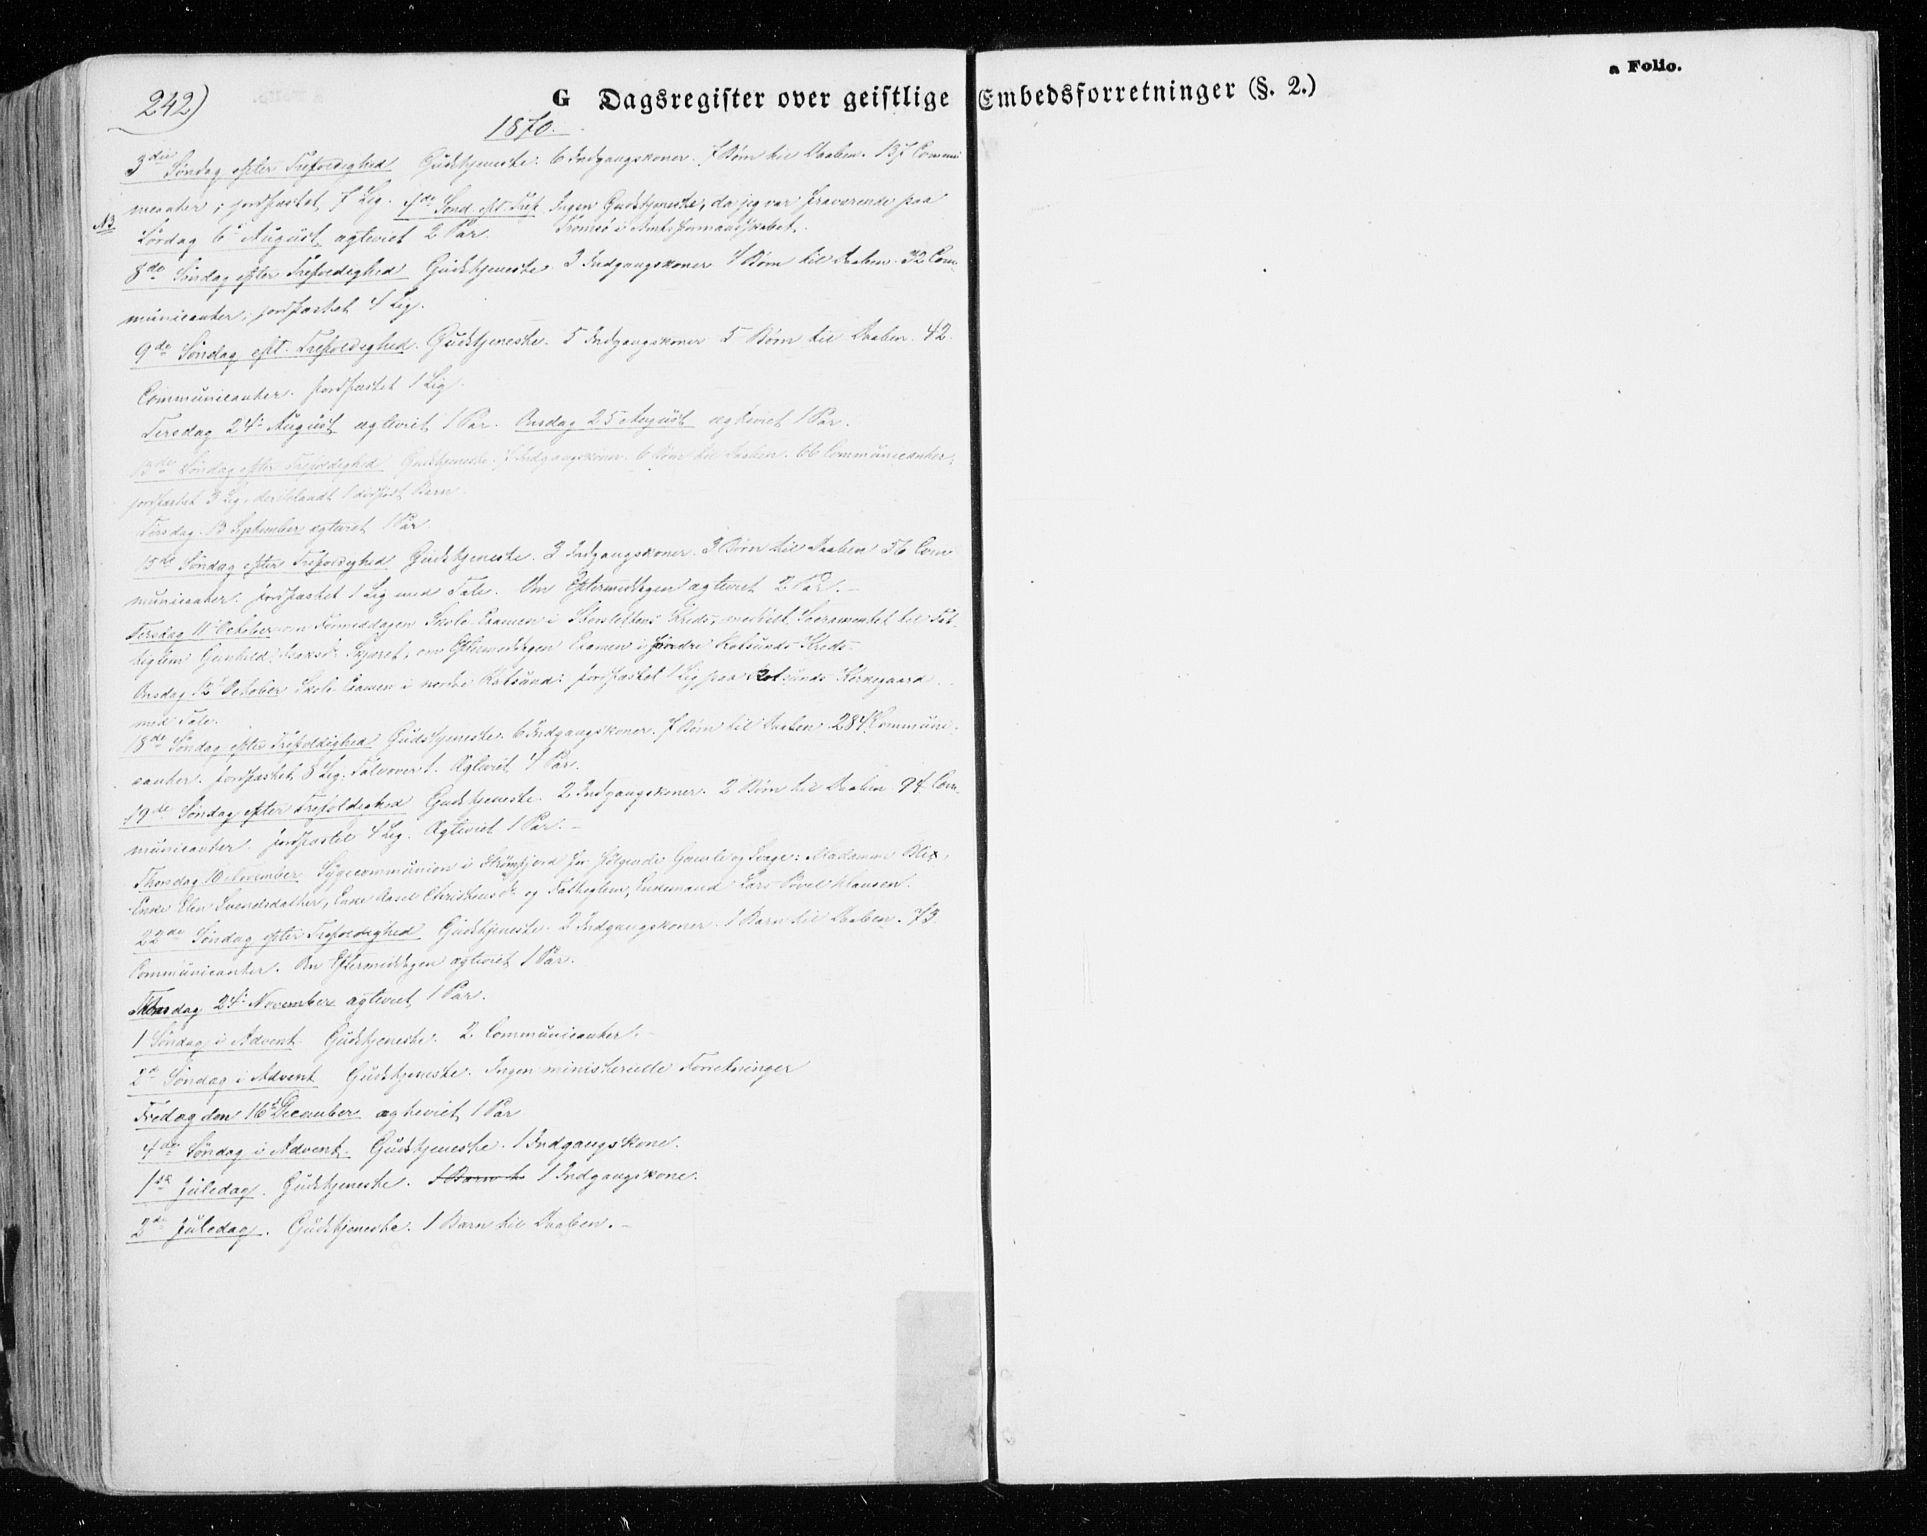 242)
a Folio.
G Dagsregister over geistlige Embedsforretninger (§. 2.)
1870.
3die Søndag efter Trefoldighed Gudstjeneste. 6 Indgangskoner. 7 Børn til Daaben. 137 Commu
nicanter; jordfæstet 7 Lig. 7de Sønd. eft. Tref. Ingen Gudstjeneste, da jeg var fraværende paa
NB Lørdag 6te August ægteviet 2 Par. Tromsø i Amtsformandskabet.
8de Søndag efter Trefoldighed Gudstjeneste. 3 Indgangskoner 4 Børn til Daaben. 32 Com-
municanter; jordfæstet 4 Lig.
9de Søndag eft. Trefoldighed. Gudstjeneste. 5 Indgangskoner 5 Børn til Daaben. 42.
Communicanter. jordfæstet 1 Lig.
Tirsdag 24de August ægteviet 1 Par. Onsdag 25 August ægteviet 1 Par.
13de Søndag efter Trefoldighed Gudstjeneste. 7 Indgangskoner. 6 Børn til Daaben. 66 Communicanter,
jordfæstet 3 Lig, deriblandt 1 dødfødt Barn.
Tirsdag 13 September ægteviet 1 Par.
15de Søndag efter Trefoldighed Gudstjeneste. 3 Indgangskoner. 3 Børn til Daaben 56 Com
municanter. jordfæstet 1 Lig med Tale. Om Eftermiddagen ægteviet 2 Par. -
Tirsdag 11te October om Formiddagen Skole Examen i Storslettens Kreds, meddelt Sacramentet til Fat-
tiglem Gunhild Isaksd. Skjæret, om Eftermiddagen Examen i søndre Rotsunds Kreds.
Onsdag 12 October Skole Examen i nordre Rotsund. jordfæstet 1 Lig paa Rotsunds Kirkegaard
med Tale.
18de Søndag efter Trefoldighed Gudstjeneste. 6 Indgangskoner. 7 Børn til Daaben 284 Communi-
canter. jordfæstet 8 Lig. Tale over 1. Ægteviet 4 Par.
19de Søndag efter Trefoldighed Gudstjeneste. 2 Indgangskoner. 2 Børn til Daaben. 94 Com-
municanter. jordfæstet 4 Lig. Ægteviet 1 Par. -
Thorsdag 10 November Sygecommunion i Strømfjord for følgende Gamle og Svage: Madamme Blix,
Enke Elen Svendsdatter, Enke Christensd. og Fattiglem, Enkemand Lars Povel Klausen.
22de Søndag efter Trefoldighed Gudstjeneste. 2 Indgangskoner. 1 Barn til Daaben. 73
Communicanter. Om Eftermiddagen ægteviet 1 Par.
Thorsdag 24de November ægteviet 1 Par.
1 Søndag i Advent Gudstjeneste. 2 Communicanter. -
2d Søndag i Advent Gudstjeneste. Ingen ministerielle Forretninger
Fredag den 16de December ægteviet 1 Par
4de Søndag i Advent Gudstjeneste. 1 Indgangskone.
1ste Juledag. Gudstjeneste. 1 Barn t 1 Indgangskone.
2de Juledag. Gudstjeneste. 1 Barn til Daaben. -